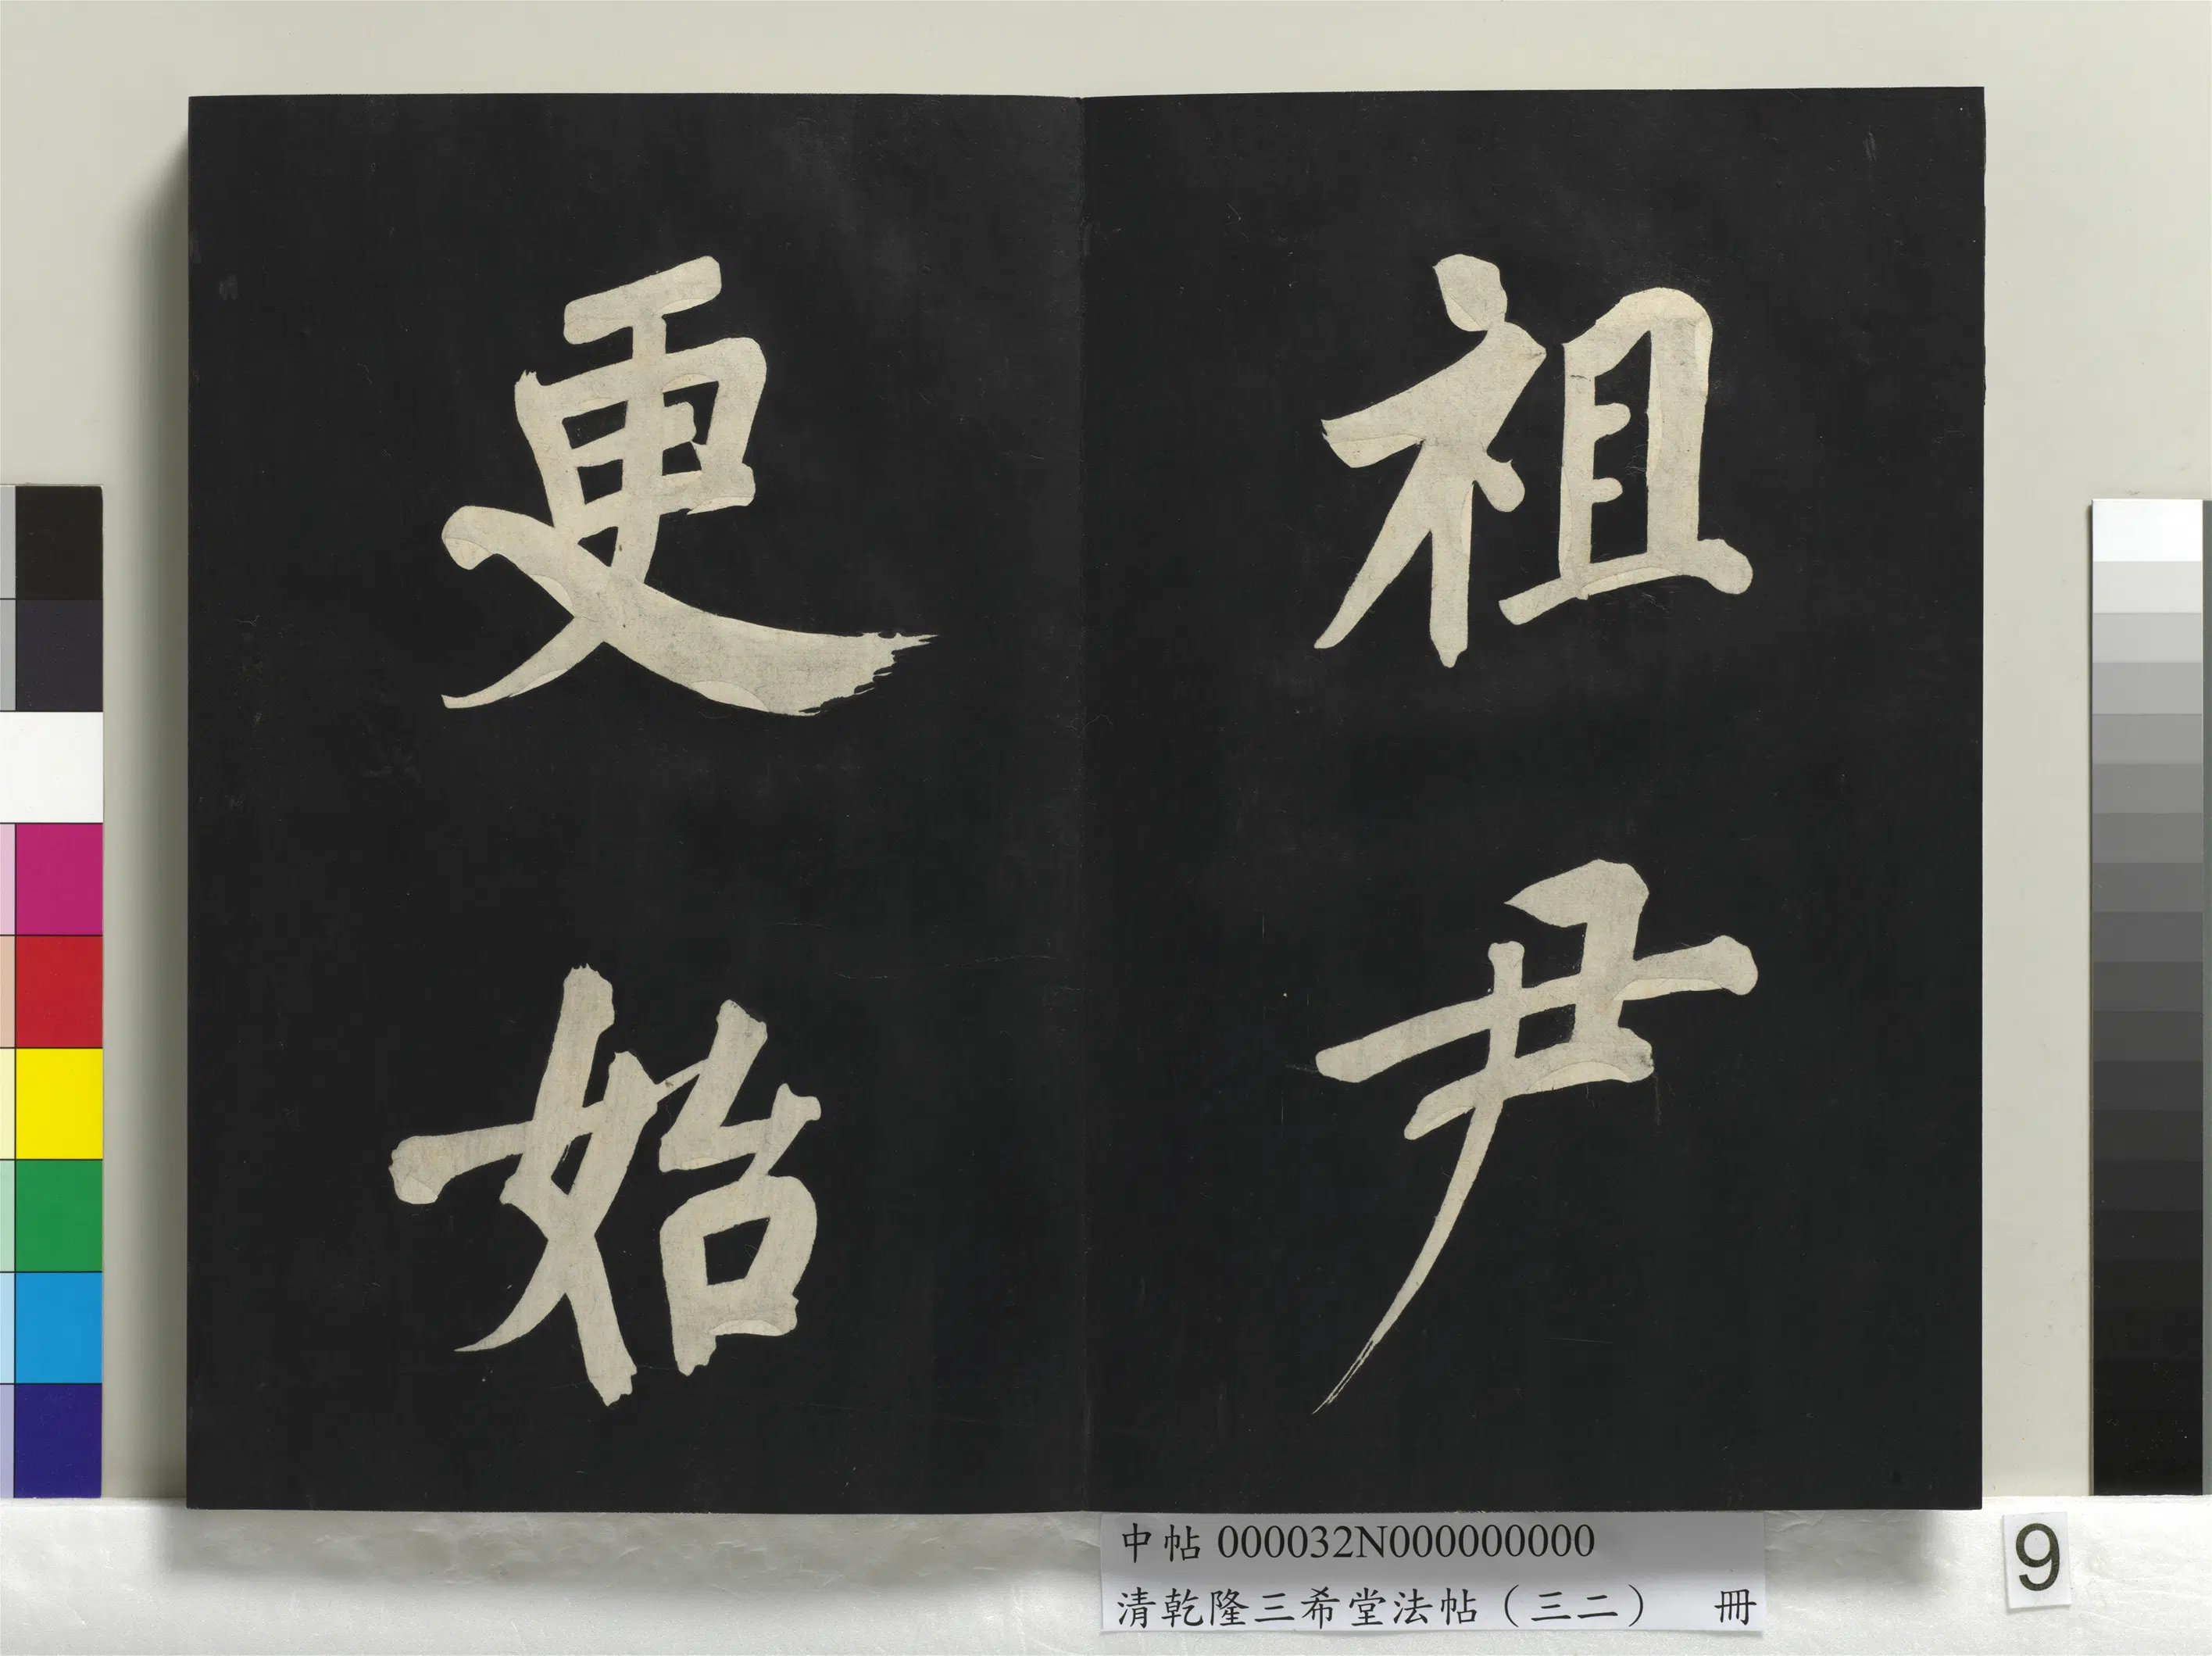 祖尹
更始
中帖 000032N000000000
清乾隆三希堂法帖（三二） 冊
9